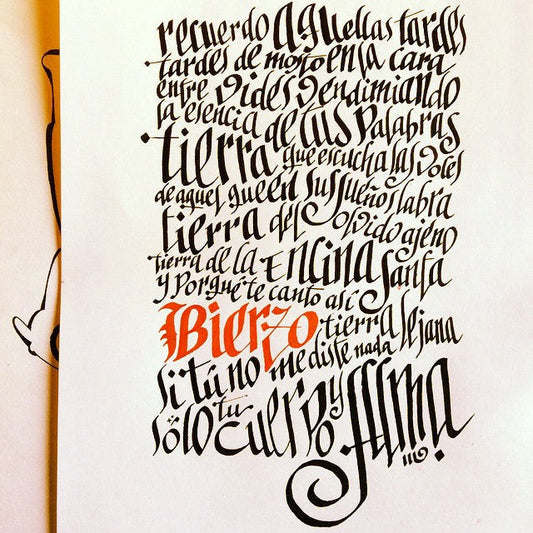 recuerdo aquellas tardes
tardes de mosto en la cara
entre vides vendimiando
la esencia de tus palabras
tierra que escucha las voces
de aquel que en sus sueños labra
tierra del olvido ajeno
tierra de la Encina Santa
y porqué te canto así
Bierzo tierra lejana
si tú no me diste nada
sólo tu cuerpo y alma